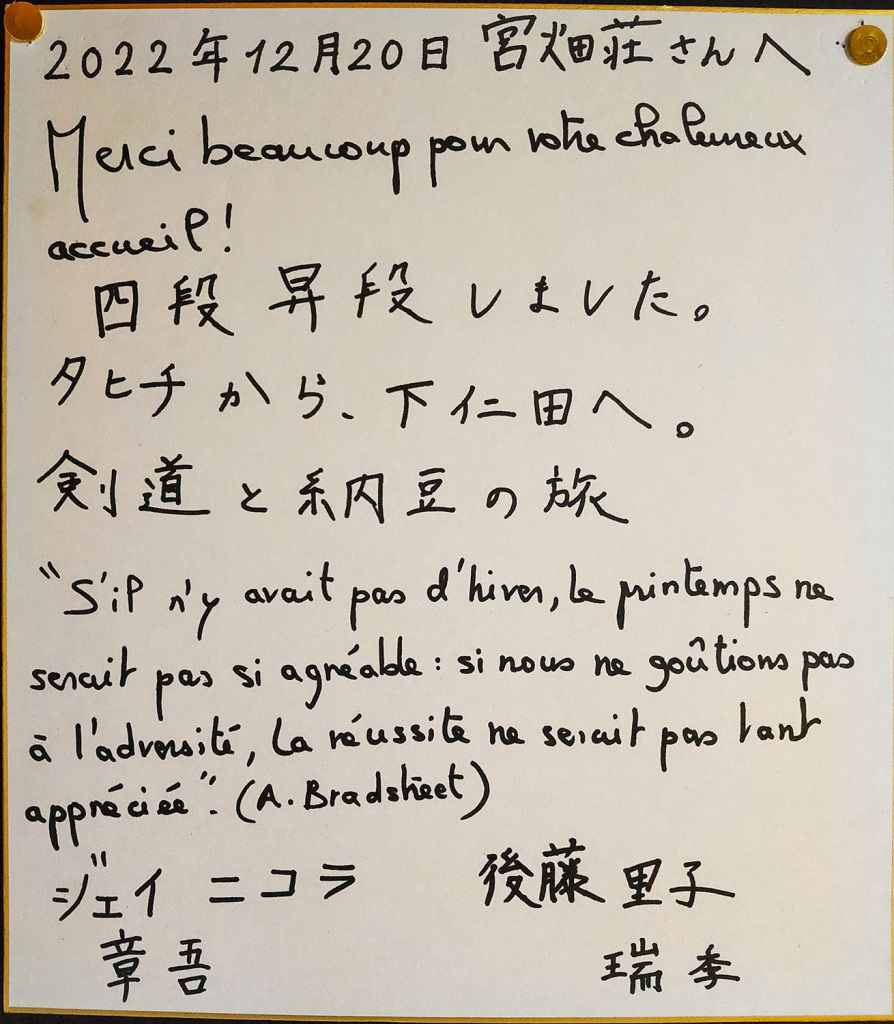 2022年12月20日 宮畑荘さんへ
Merci beaucoup pour votre chaleureux
accueil!
四段 昇段しました。
タヒチから、下仁田へ。
剣道と納豆の旅
"S'il n'y avait pas d'hiver, le printemps ne
serait pas si agréable : si nous ne goûtions pas
à l'adversité, la réussite ne serait pas tant
appréciée". (A. Bradstreet)
ジェイ ニコラ 後藤 里子
章吾 瑞季